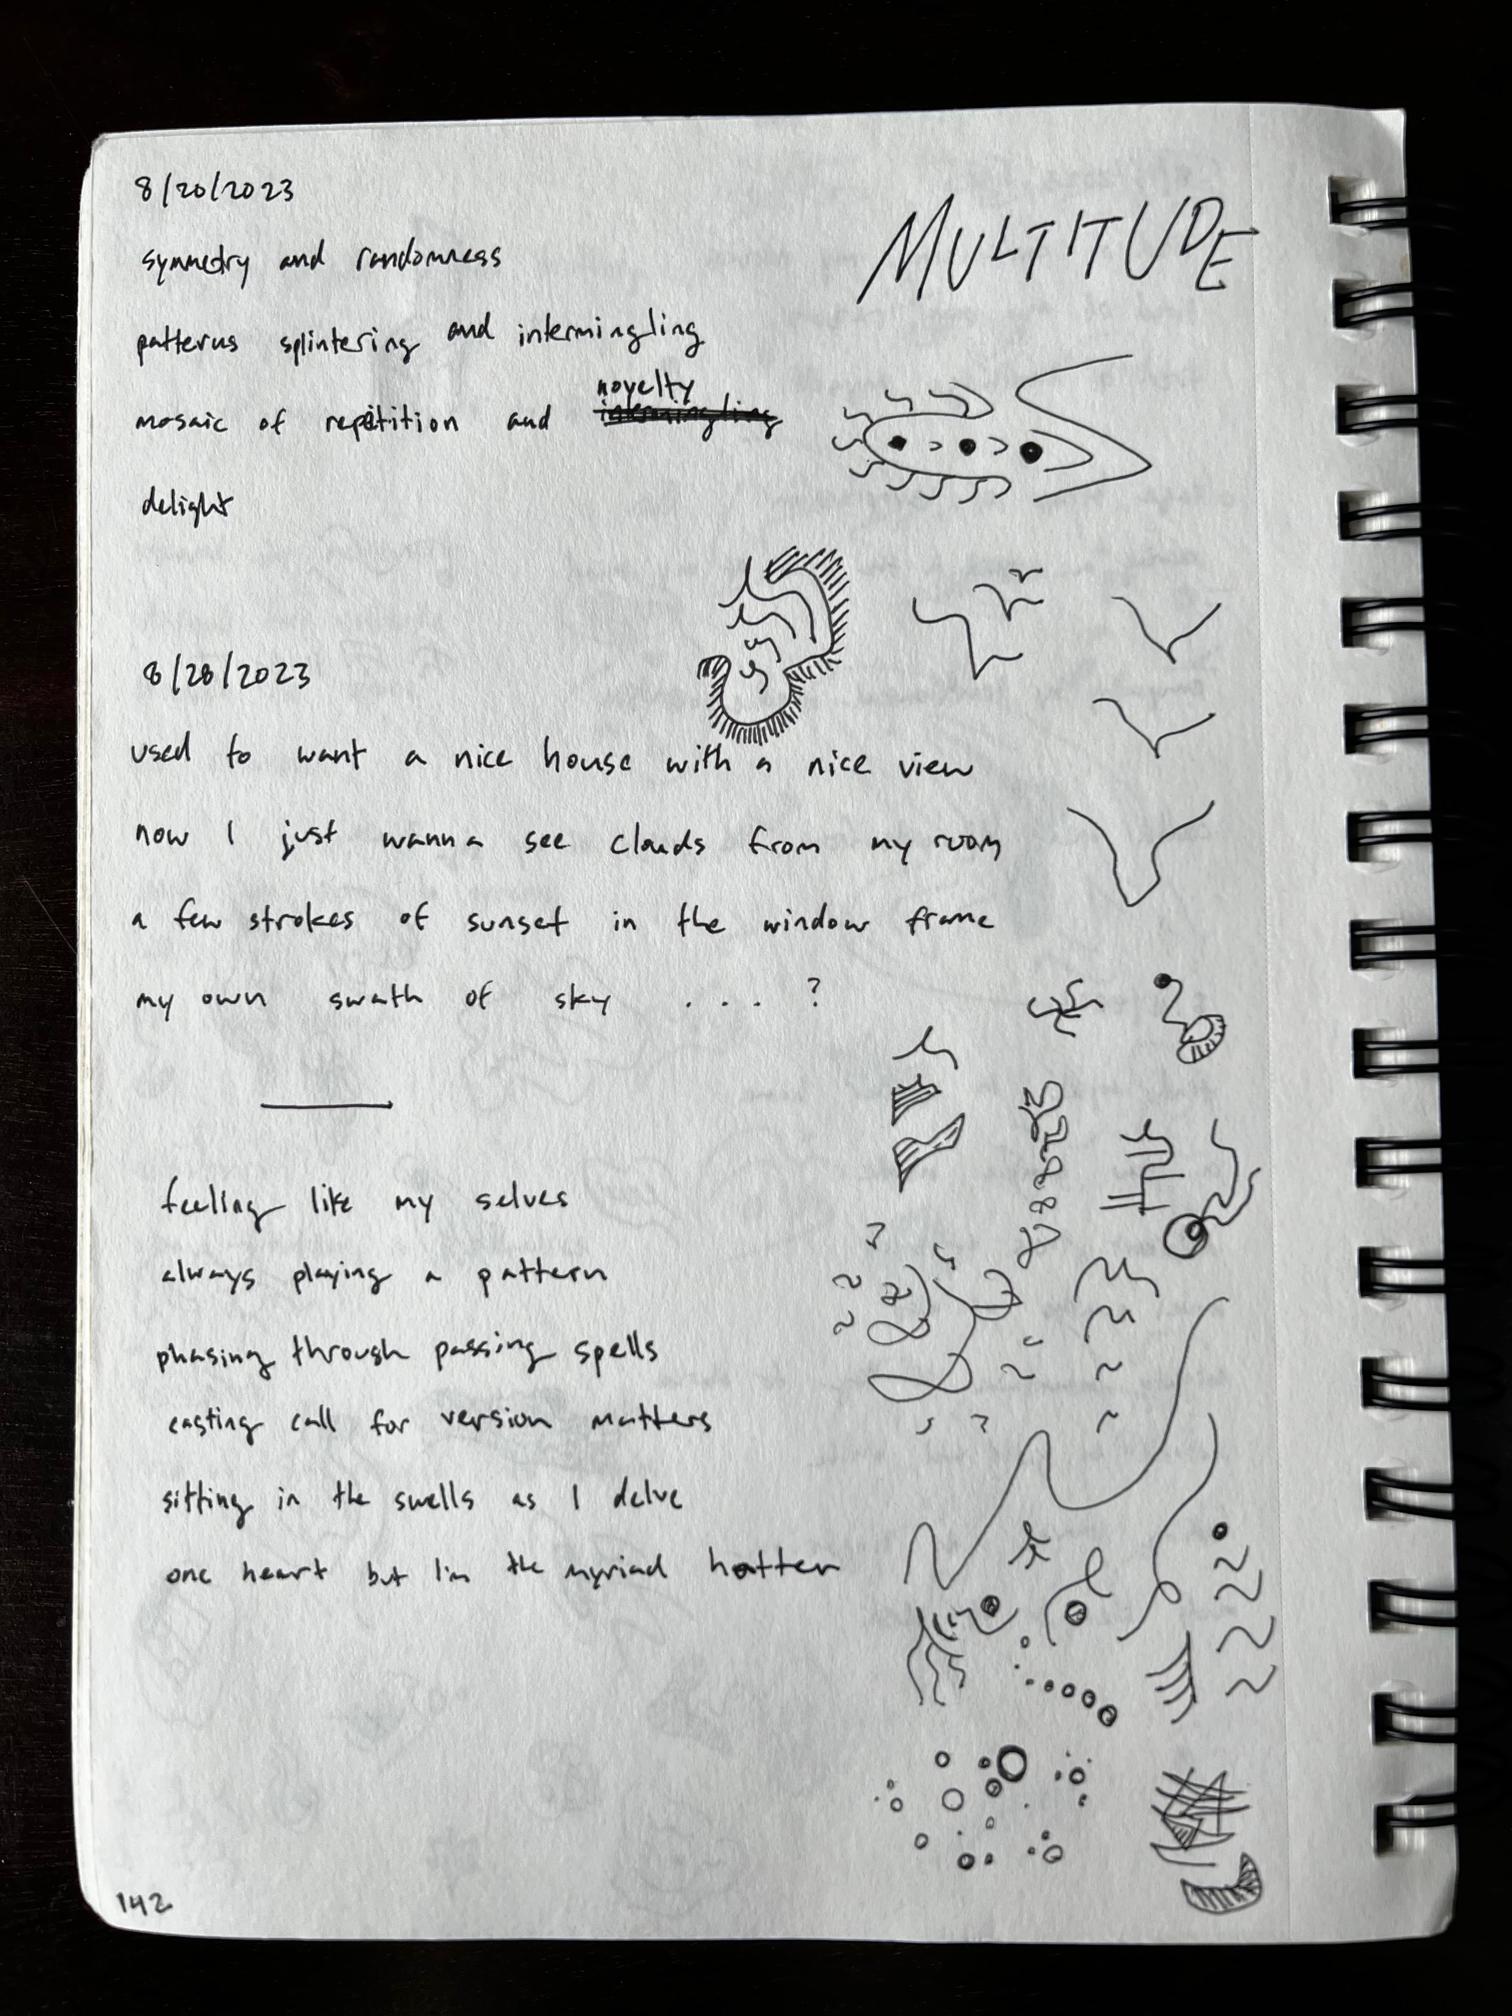 8/20/2023
MULTITUDE
symmetry and randomness
patterns splintering and intermingling
mosaic of repetition and novelty
delight
8/28/2023
used to want a nice house with a nice view
now I just wanna see clouds from my room
a few strokes of sunset in the window frame
my own swath of sky . . . ?
feeling like my selves
always playing a pattern
phasing through passing spells
casting call for version matters
sitting in the swells as I delve
one heart but I'm the myriad hatter
142